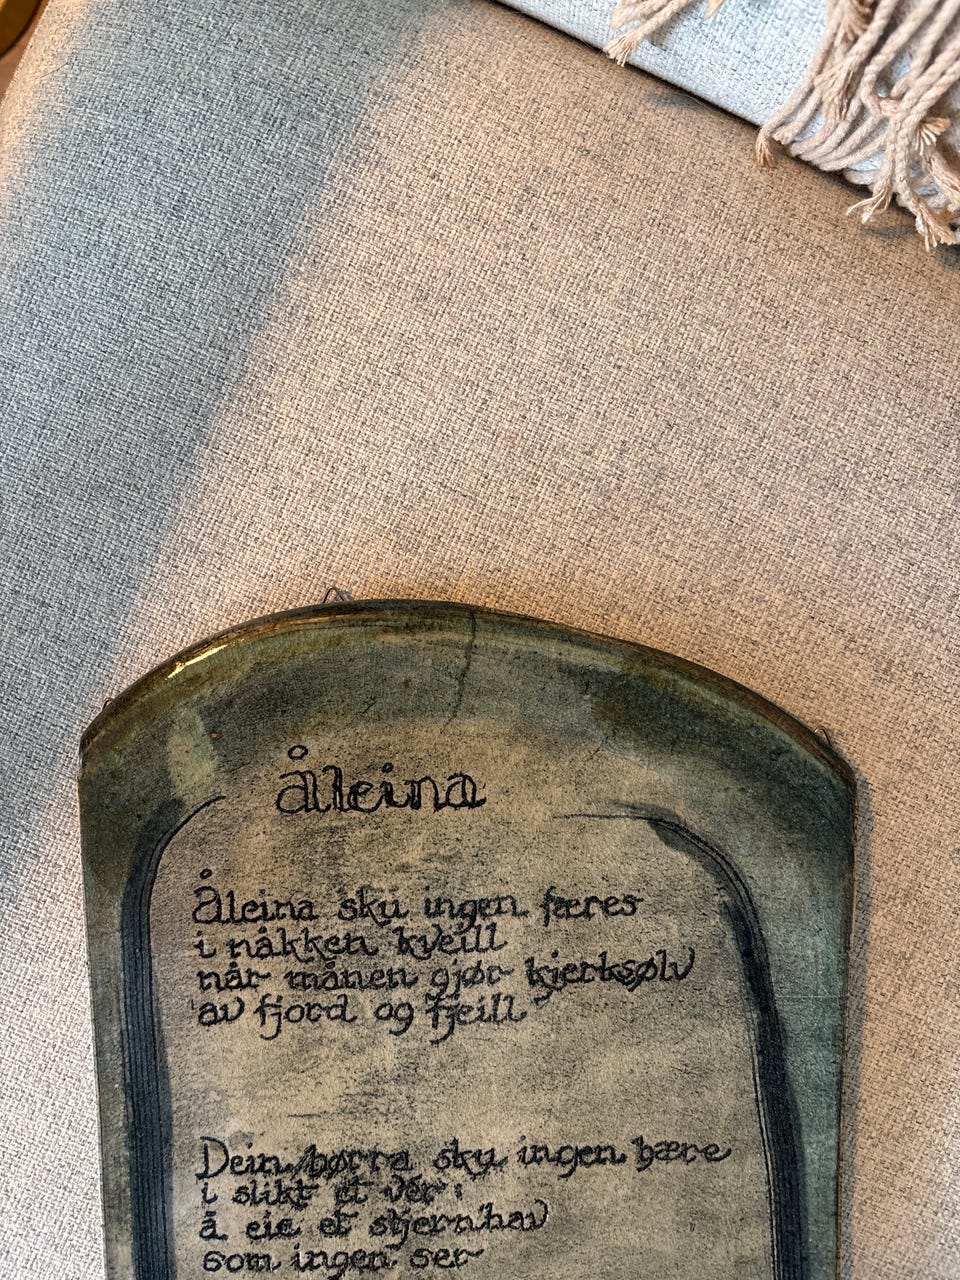 åleina
Åleina sku ingen færes
i nåkken kveill
når månen gjør kjerksølv
av fjord og fjeill
Dein børra sku ingen bære
i slikt et vér
å eie et stjernhav
som ingen ser